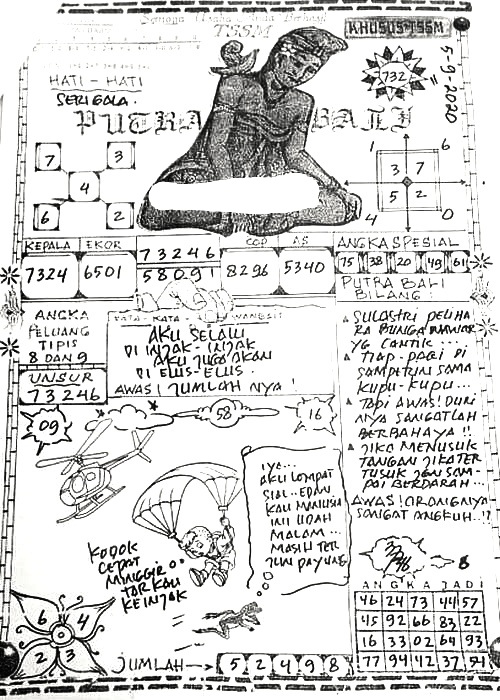 TSSM
KHUSUS-TSSM
5-9-2020
732
HATI - HATI
SERIGALA.
PUTRA BALI
7 3
4
6 2
1 6
3 7
5 2
4 0
KEPALA EKOR
7324 6501
73246
58091
COP AS
8296 5340
ANGKA SPESIAL
75 38 20 49 61
PUTRA BALI
BILANG :
ANGKA
PELUANG
TIPIS
8 DAN 9
UNSUR
73246
KATA - KATA
AKU SELALU
DI INJAK - INJAK
AKU JUGA AKAN
DI ELUS-ELUS.
AWAS! JUMLAH NYA !
SULASTRI PELIHA
RA BUNGA MAWAR
YG CANTIK ....
TIAP-PAGI DI
SAMPERIN SAMA
KUPU-KUPU...
TAPI AWAS! DURI
NYA SANGATLAH
BERBAHAYA !!.
JIKA MENUSUK
TANGAN JIKA TER
TUSUK DEN SAM-
PAI BERDARAH...
AWAS! ORANGNYA
SANGAT ANGKUH..!!
09
58
16
IYA...
AKU LOMPAT
SIAL.. EDAN
KAU MANUSIA
INI UDAH
MALAM...
MASIH TER
JUN PAYUNG
KODOK
CEPAT
MINGGIR
TAR KAU
KEINJAK
8
ANGKA JADI
46 24 73 44 57
45 92 66 83 22
16 33 02 64 93
77 94 42 37 51
6 4
2 3
JUMLAH
5 2 4 9 8